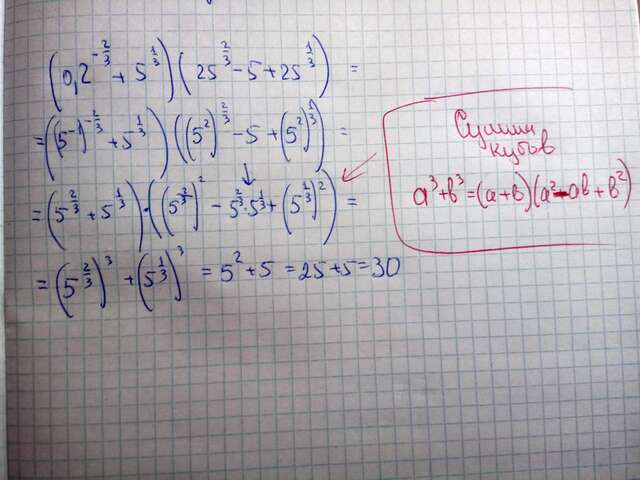 (0,2^{-2/3} + 5^{1/3})(25^{2/3} - 5 + 25^{1/3}) =
= ((5^{-1})^{-2/3} + 5^{1/3})((5^2)^{2/3} - 5 + (5^2)^{1/3}) =
= (5^{2/3} + 5^{1/3})·((5^{2/3})^2 - 5^{2/3}·5^{1/3} + (5^{1/3})^2) =
= (5^{2/3})^3 + (5^{1/3})^3 = 5^2 + 5 = 25 + 5 = 30
Сумма
кубов
a^3 + b^3 = (a + b)(a^2 - ab + b^2)